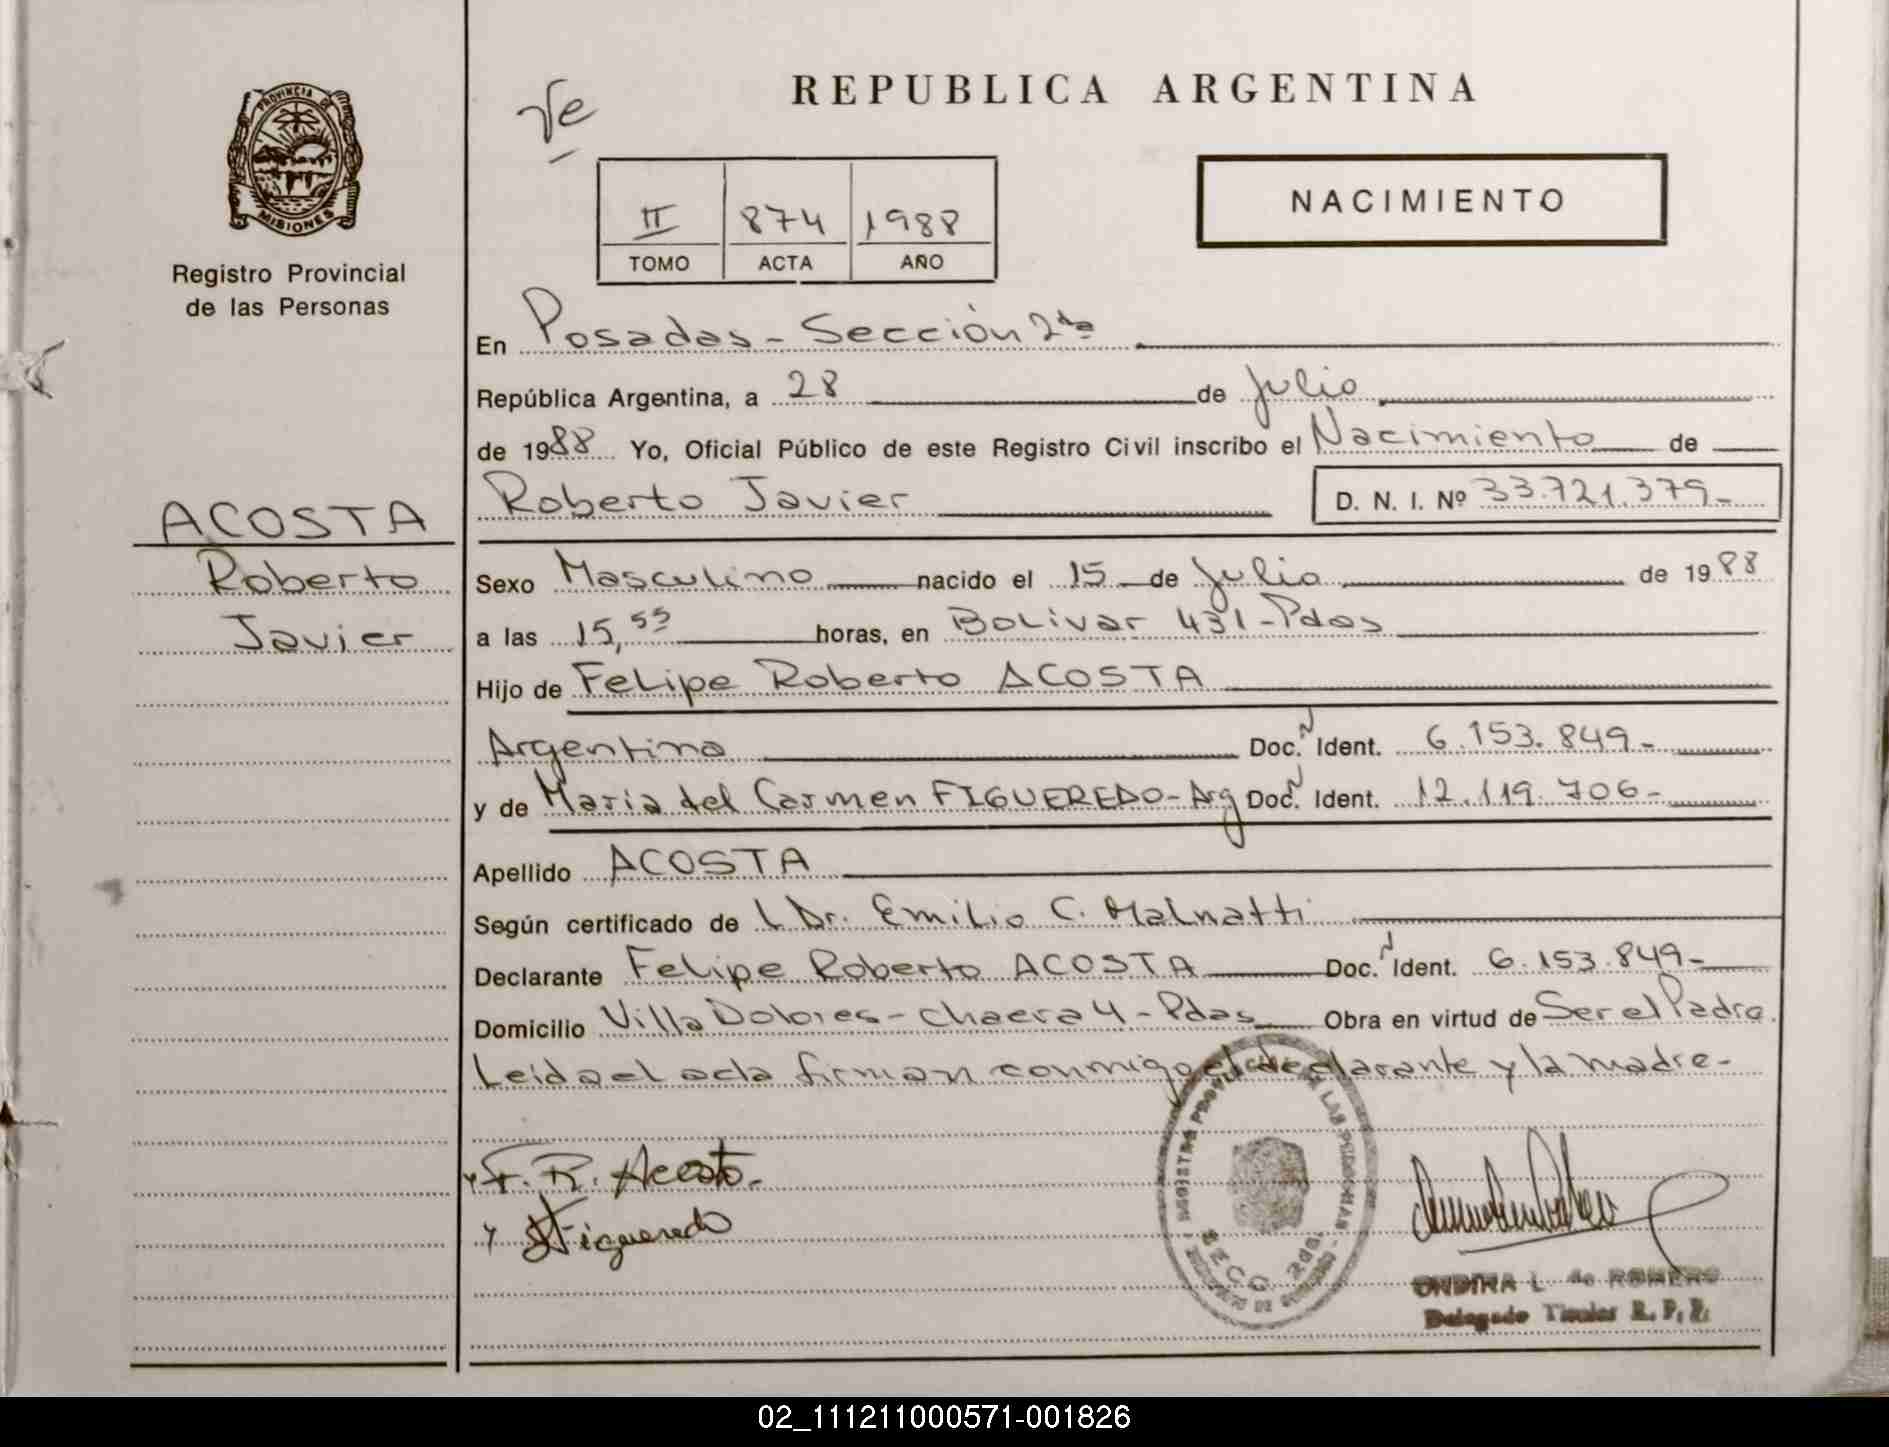 REPUBLICA ARGENTINA
PROVINCIA DE
MISIONES
Registro Provincial
de las Personas
II 874 1988
TOMO ACTA AÑO
NACIMIENTO
En Posadas - Sección 2da
República Argentina, a 28 de Julio
de 1988 Yo, Oficial Público de este Registro Civil inscribo el Nacimiento de
Roberto Javier D. N. I. Nº 33.721.379-
ACOSTA
Roberto
Javier
Sexo Masculino nacido el 15 de Julio de 1988
a las 15,55 horas, en Bolivar 431 - Pdas
Hijo de Felipe Roberto ACOSTA
Argentino Doc. N Ident. 6.153.849-
y de Maria del Carmen FIGUEREDO - Arg Doc. N Ident. 12.119.706-
Apellido ACOSTA
Según certificado de L Dr. Emilio C. Malnatti
Declarante Felipe Roberto ACOSTA Doc. N Ident. 6.153.849-
Domicilio Villa Dolores - Chacra 4 - Pdas Obra en virtud de Ser el Padre
Leida el acta firman conmigo el declarante y la madre-
F. R. Acosta.
Figueredo
SECC. 2da.
ONDINA L. de ROMERO
Delegado Titular R. P. P.
02_111211000571-001826